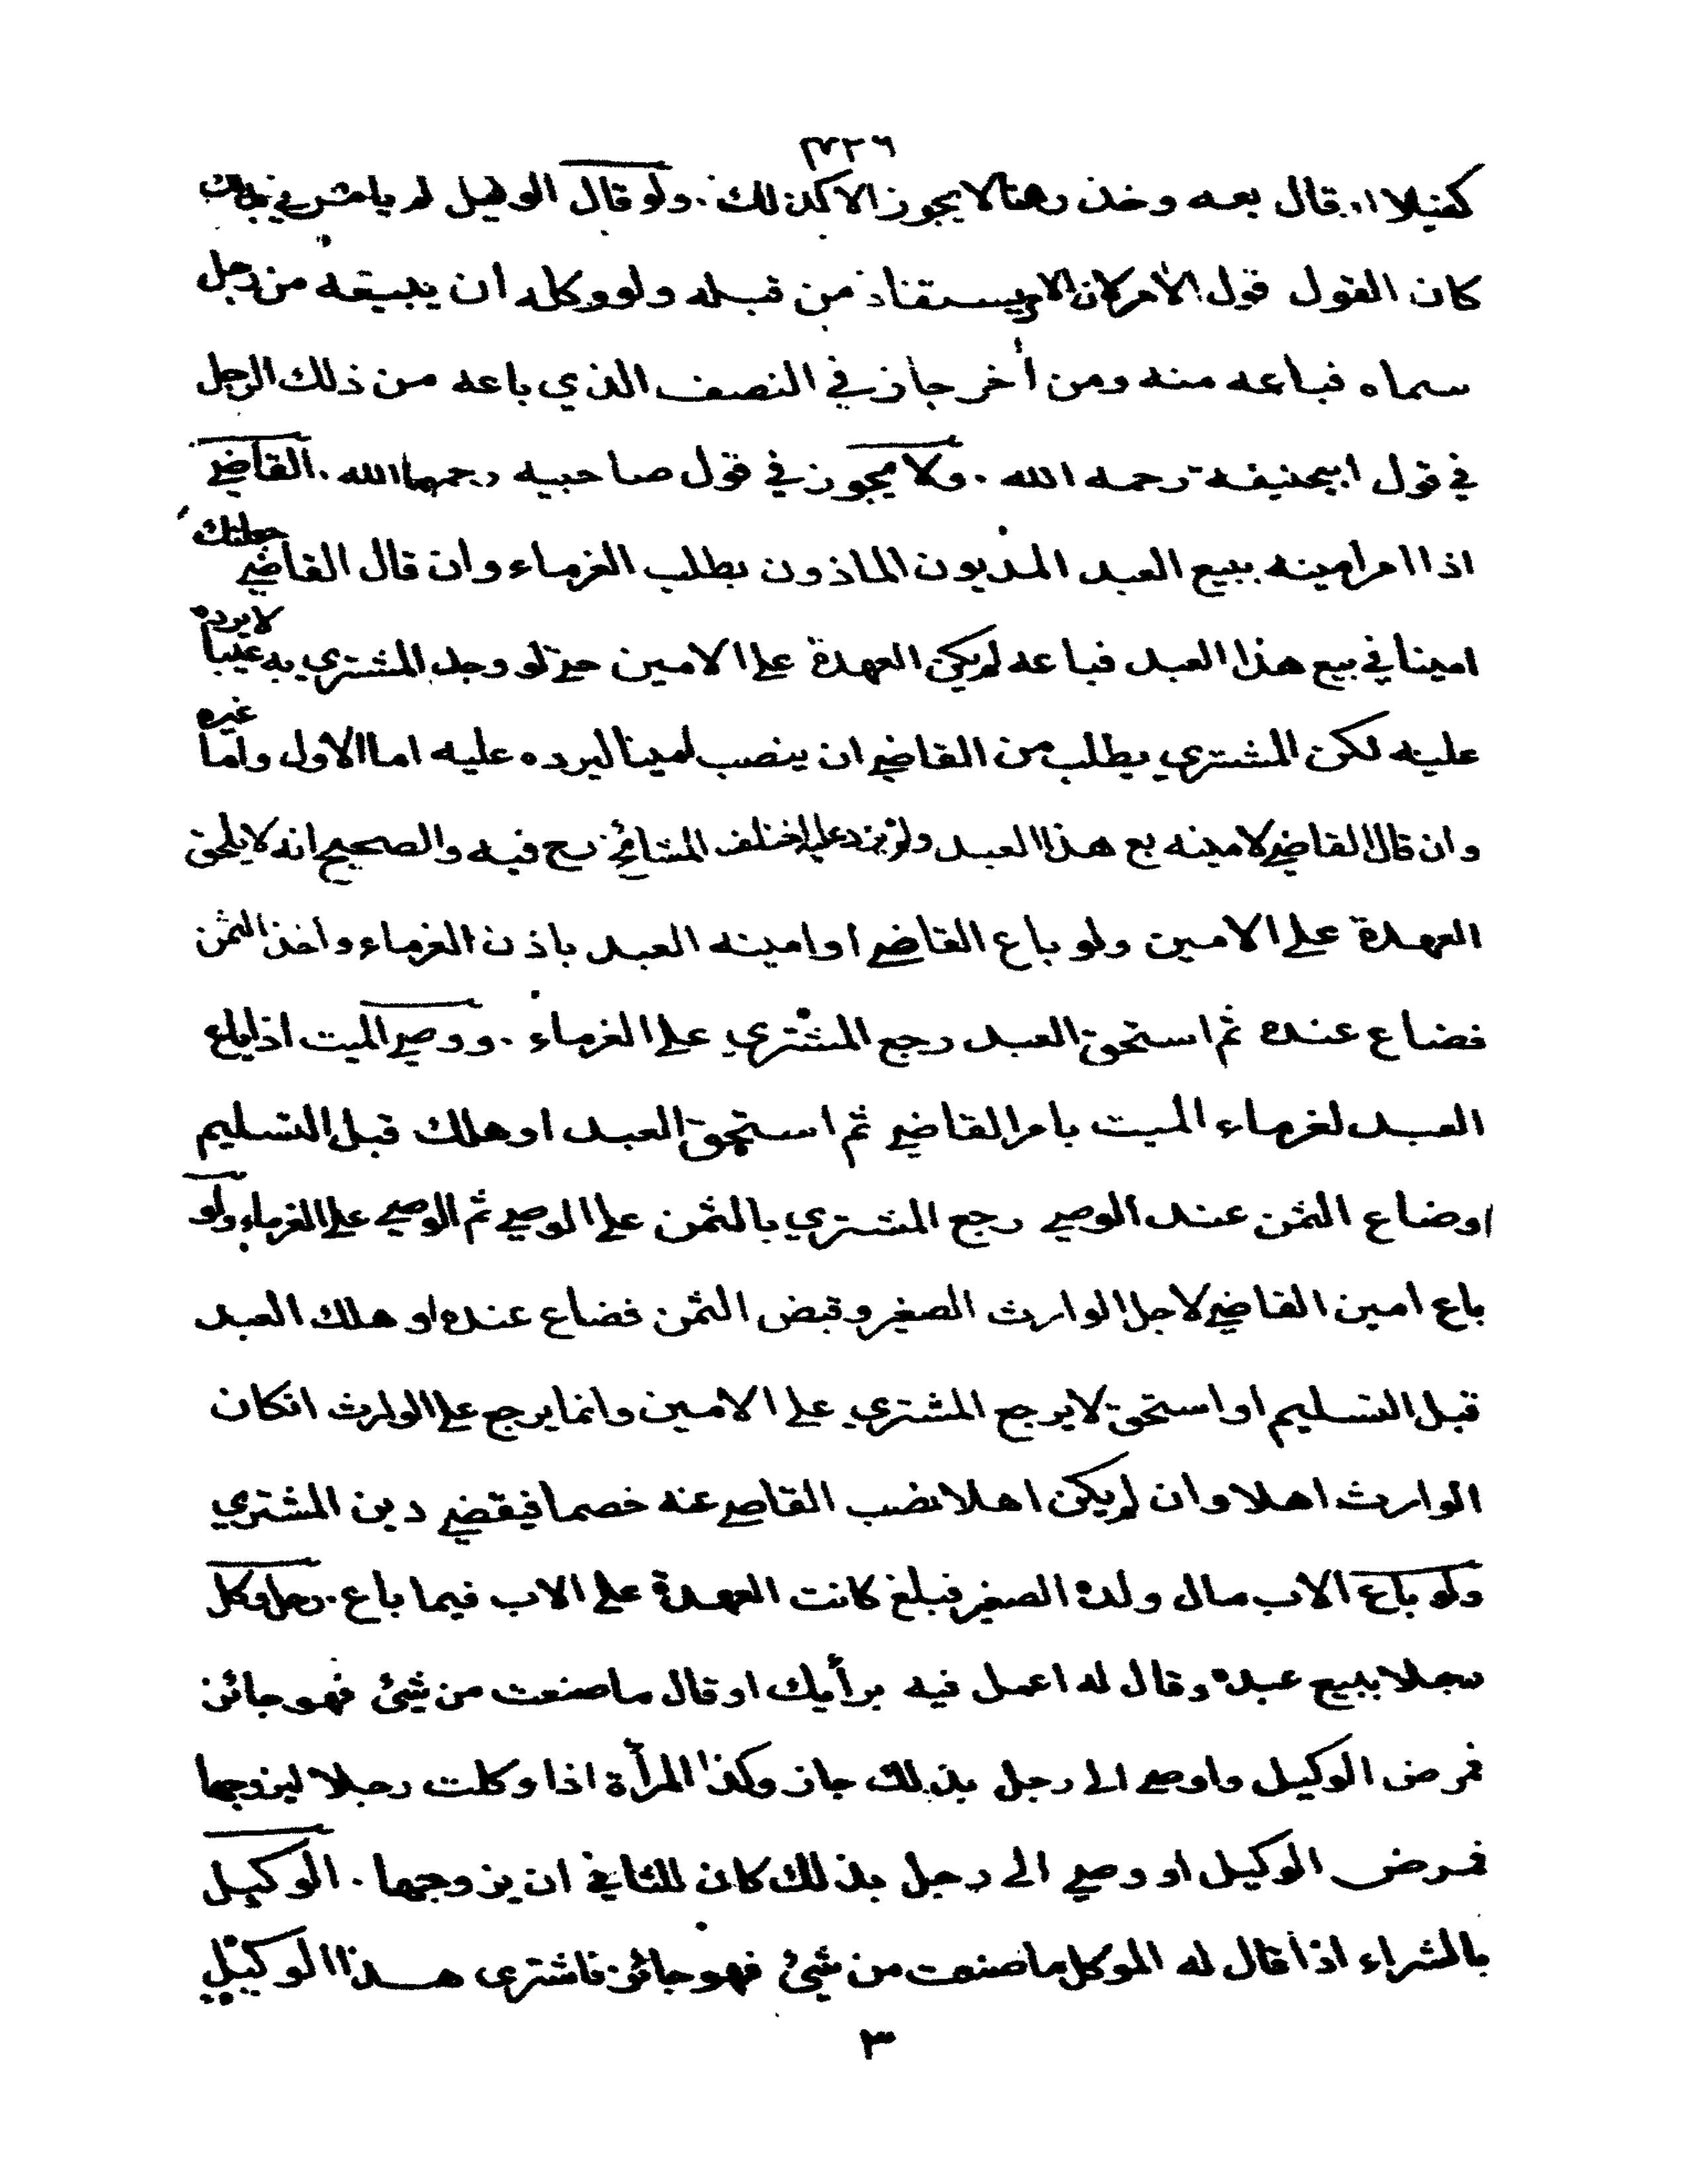 ٣٢٦
كفيلا او قال بعه وخذ رهنا لا يجوز الا كذلك . ولو قال الوكيل لم يامرني بذلك
كان القول قول الآمر لان الامر يستفاد من قبله ولو وكله ان يبيعه من رجل
سماه فباعه منه ومن أخر جاز في النصف الذي باعه من ذلك الرجل
في قول ابيحنيفة رحمه الله . ولا يجوز في قول صاحبيه رحمهما الله . القاضي
اذا امر امينه ببيع العبد المديون الماذون بطلب الغرماء وان قال القاضي جعلتك
امينا في بيع هذا العبد فباعه لم يكن العهدة على الامين حتى لو وجد المشتري به عيبا لا يرده
عليه لكن المشتري يطلب من القاضي ان ينصب امينا ليرده عليه اما الاول واما غيره
وان قال القاضي لامينه بع هذا العبد ولم يزد عليه اختلف المشائخ رح فيه والصحيح انه لا يلحق
العهدة على الامين ولو باع القاضي او امينه العبد باذن الغرماء واخذ الثمن
فضاع عنده ثم استحق العبد رجع المشتري على الغرماء . ووصي الميت اذا باع
العبد لغرماء الميت بامر القاضي ثم استحق العبد او هلك قبل التسليم
اوضاع الثمن عند الوصي رجع المشتري بالثمن على الوصي ثم الوصي على الغرماء . ولو
باع امين القاضي لاجل الوارث الصغير وقبض الثمن فضاع عنده او هلك العبد
قبل التسليم او استحق لا يرجع المشتري على الامين وانما يرجع على الوارث انكان
الوارث اهلا وان لم يكن اهلا نصب القاضي عنه خصما فيقضي دين المشتري
ولو باع الاب مال ولده الصغير فبلغ كانت العهدة على الاب فيما باع . رجل وكل
رجلا ببيع عبده وقال له اعمل فيه برأيك او قال ما صنعت من شئ فهو جائز
فمرض الوكيل واوصى الى رجل بذلك جاز وكذا المرأة اذا وكلت رجلا ليزوجها
فمرض الوكيل او وصي الى رجل بذلك كان للثاني ان يزوجها . الوكيل
بالشراء اذا قال له الموكل ما صنعت من شئ فهو جائز فاشترى هذا الوكيل
٣